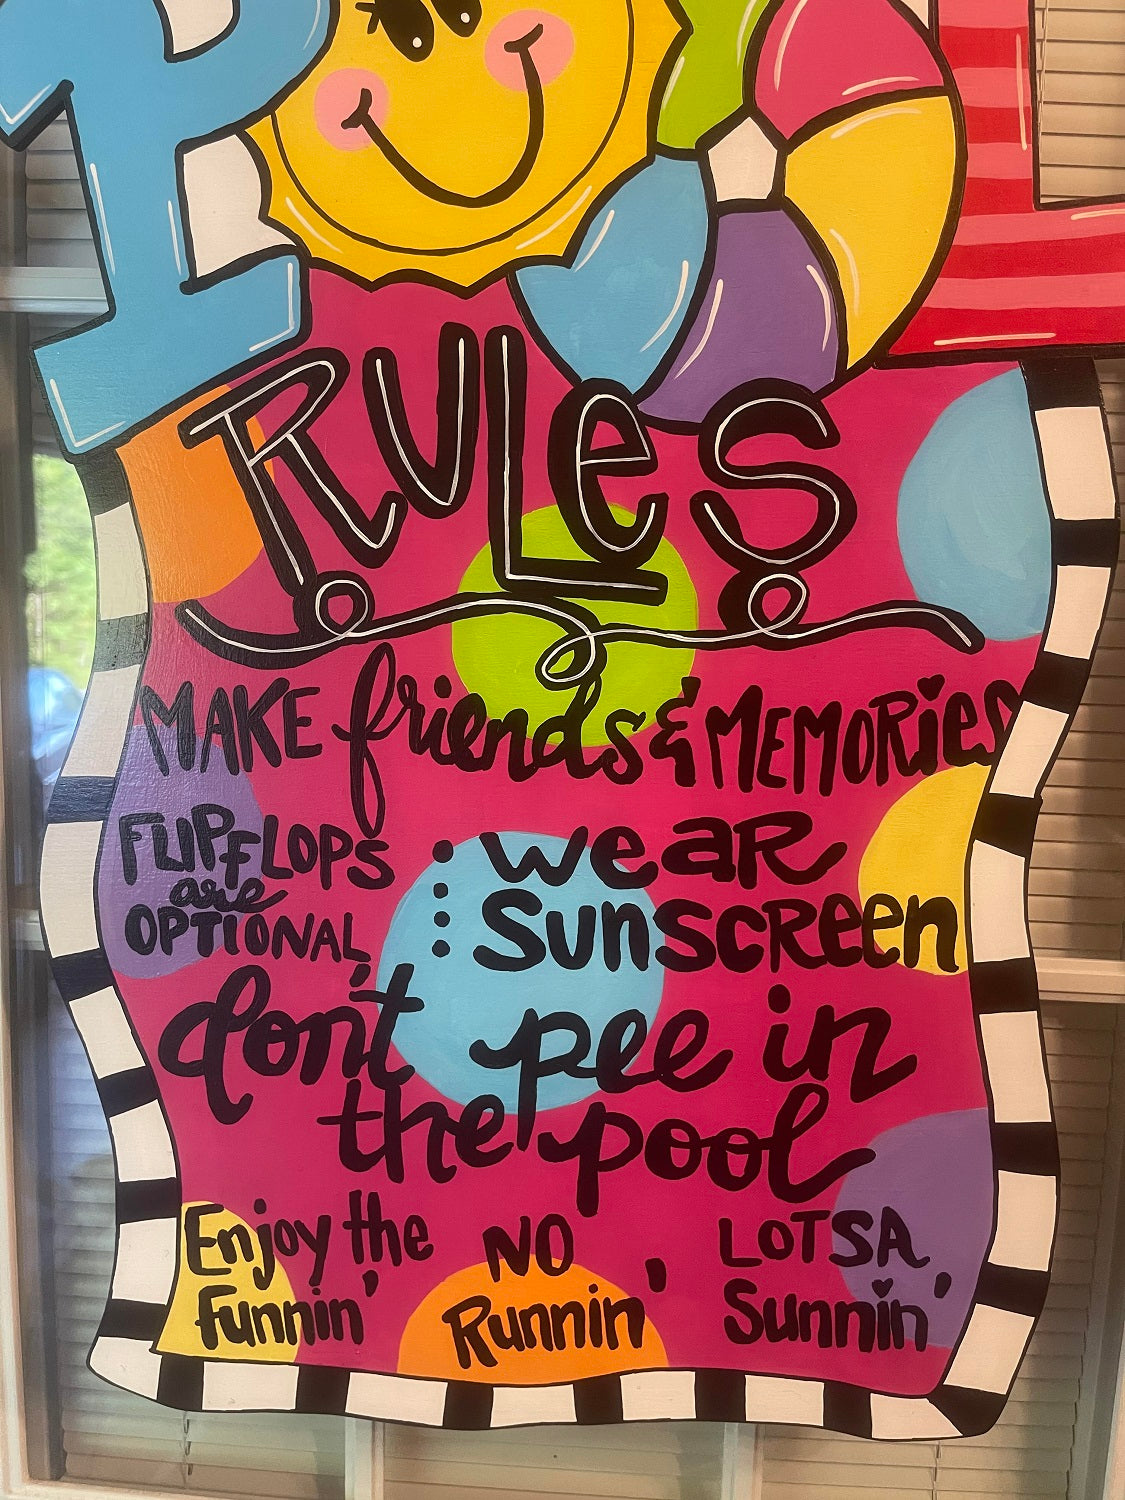 POOL
RULes
MAKE friends & MEMORies
FLIPFLOPS
are
OPTIONAL
: wear
Sunscreen
don't pee in
the pool
Enjoy the
Funnin'
NO
Runnin'
LOTSA
Sunnin'